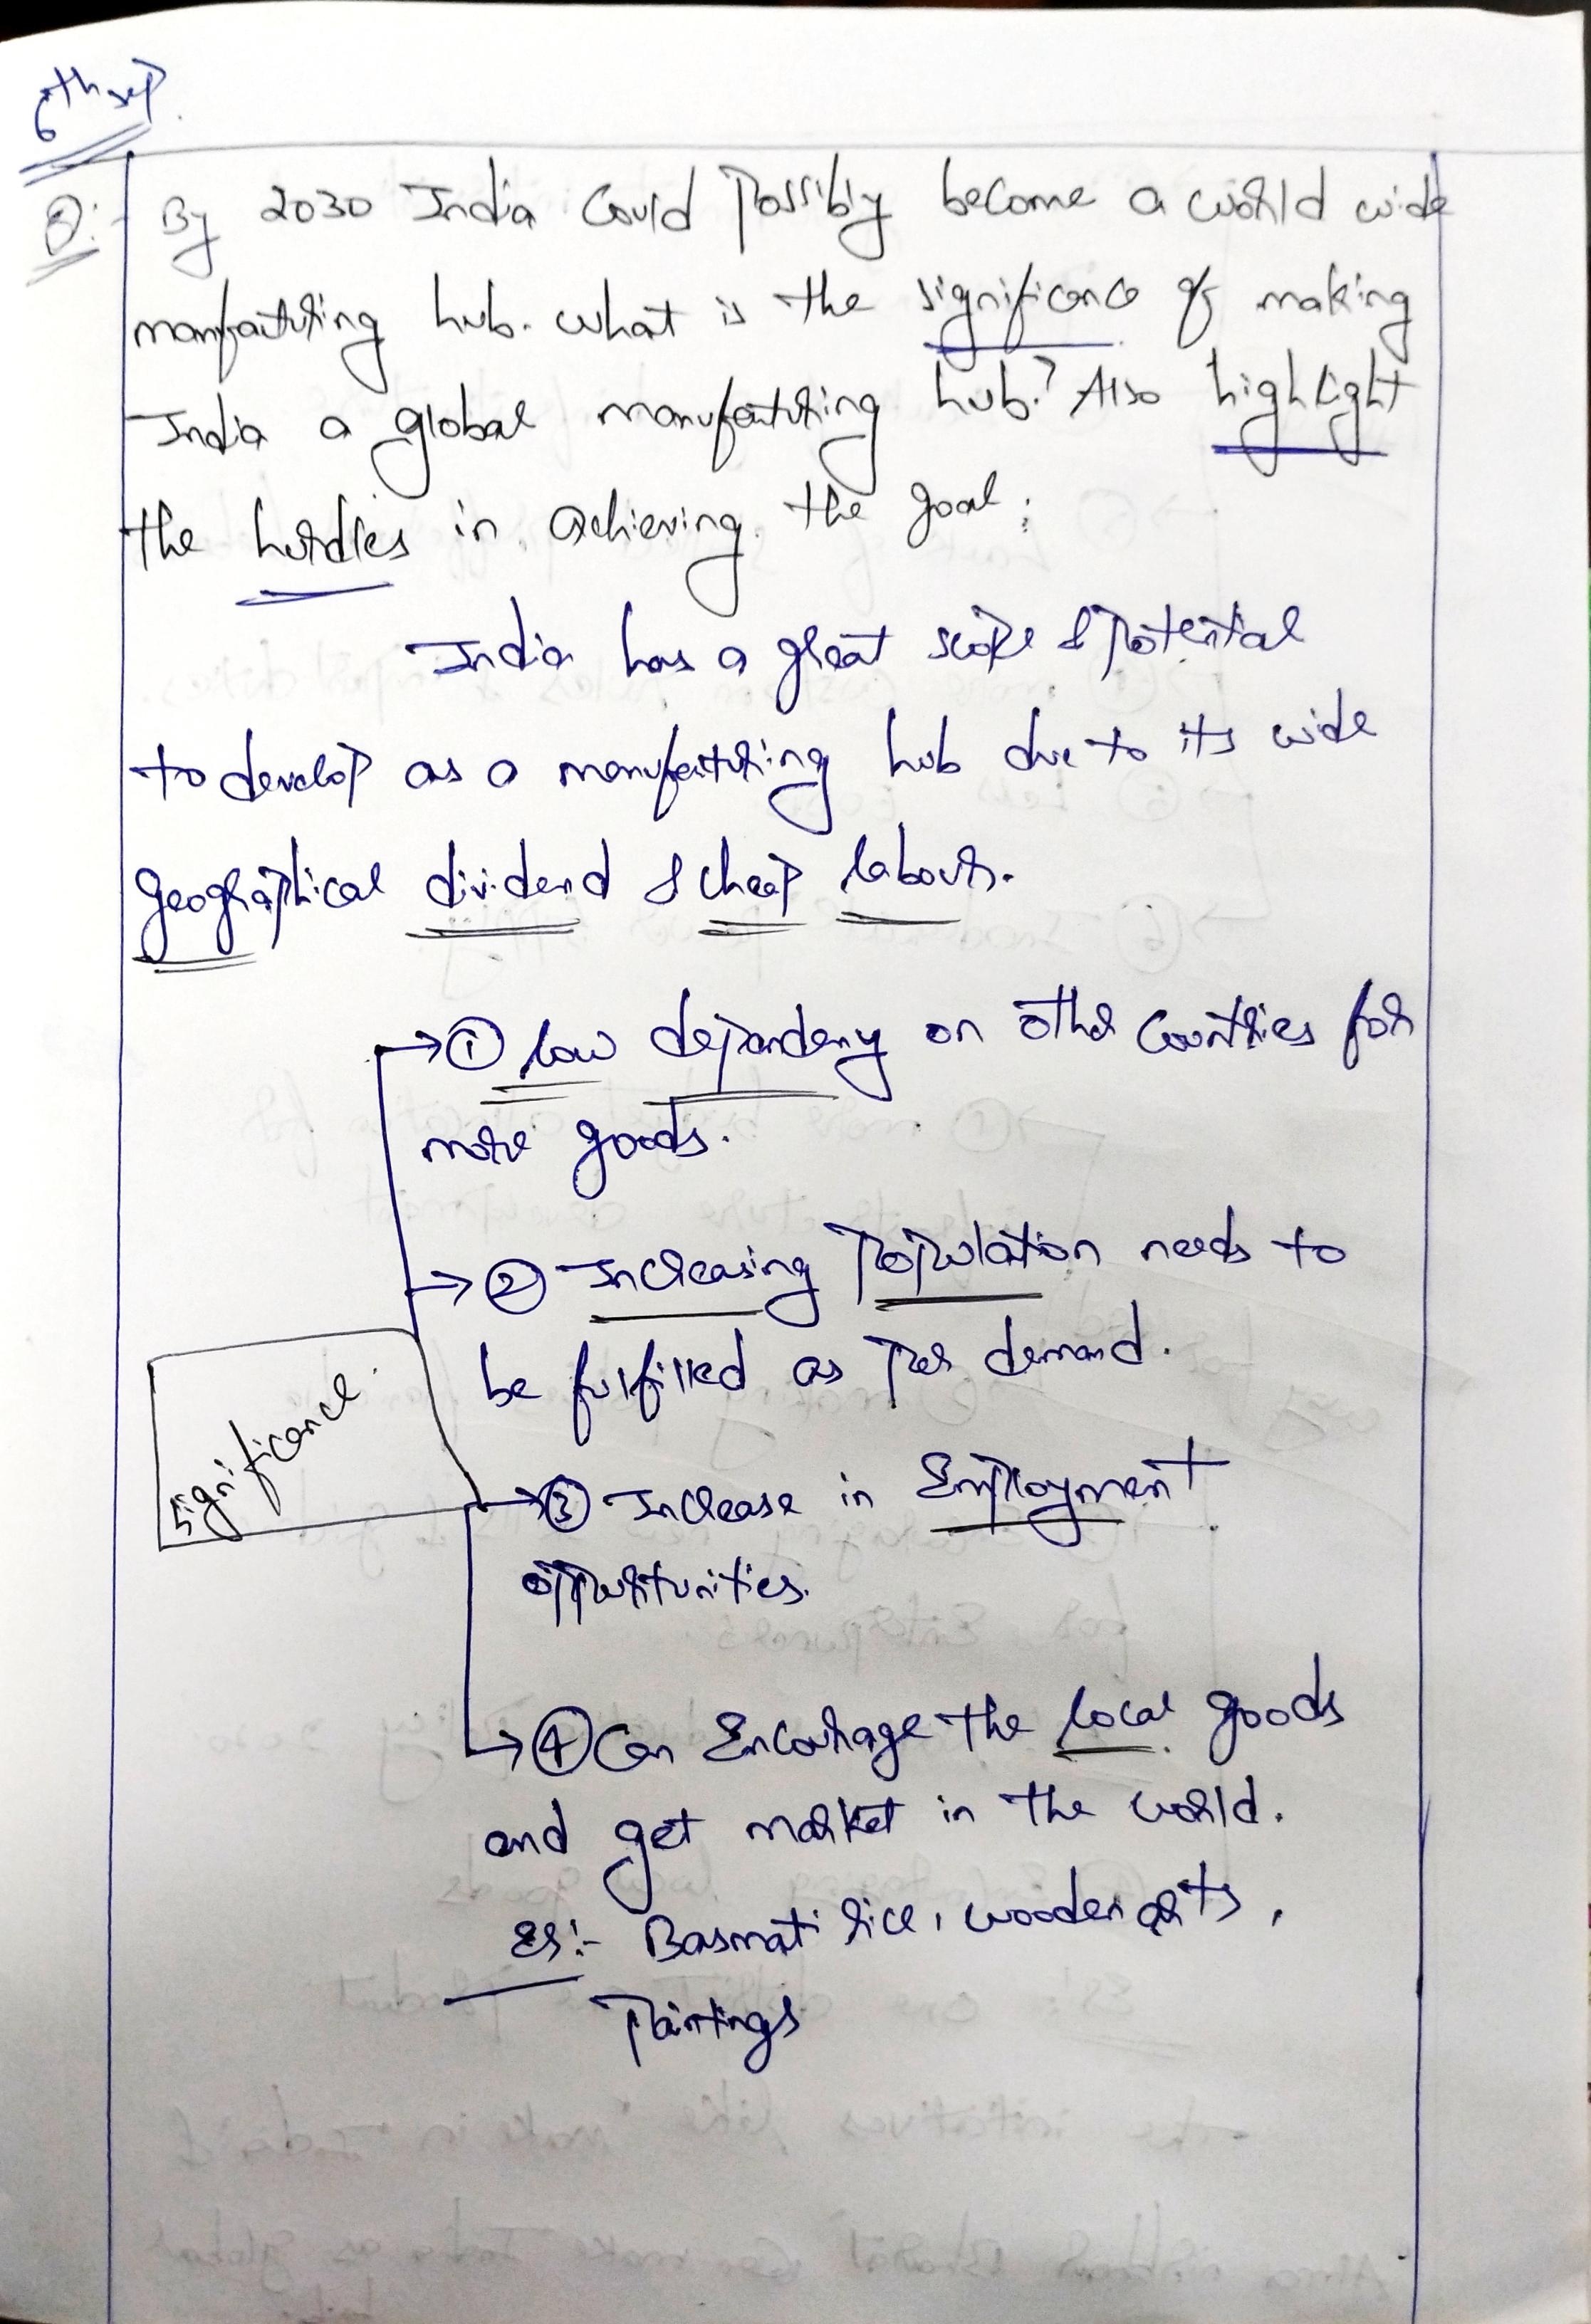 6th sep.
Q:- By 2030 India could possibly become a world wide
manfacturing hub. what is the significance of making
India a global manufacturing hub? Also highlight
the hurdles in achieving the goal.
India has a great scope & potential
to develop as a manufacturing hub due to its wide
geographical dividend & cheap labour.
→ ① low dependeny on other countries for
more goods.
→ ② Increasing population needs to
be fulfilled as per demand.
significance.
→ ③ Increase in Employment
opportunities.
→ ④ Can Encourage the local goods
and get market in the world.
Eg:- Basmati rice, wooden arts,
Paintings